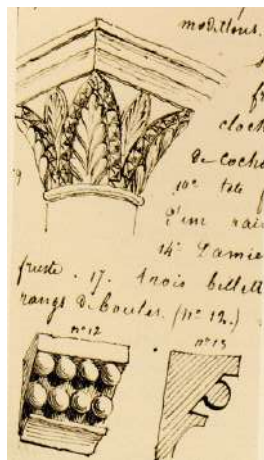 modillons.
fr
cloch
de coche
10e tête f
d'un rai
14e Damie
fruste. 17. trois billett
rangs de boules. (no 12.)
no 12
no 13